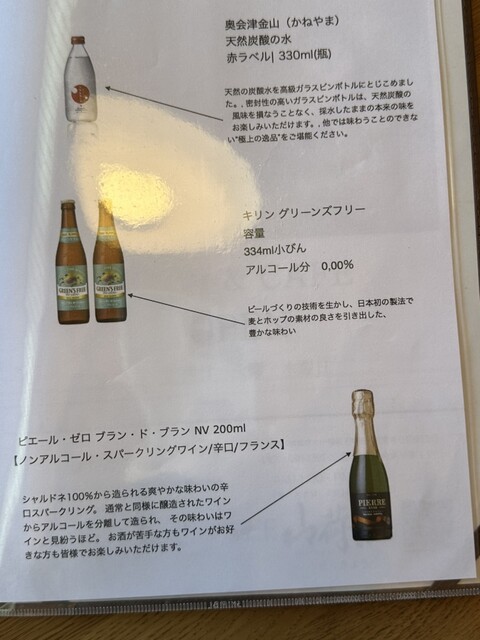 奥会津金山（かねやま）
天然炭酸の水
赤ラベル| 330ml(瓶)
天然の炭酸水を高級ガラスビンボトルにとじこめまし
た。, 密封性の高いガラスビンボトルは、天然炭酸の
風味を損なうことなく、採水したままの本来の味を
お楽しみいただけます。, 他では味わうことのできな
い"極上の逸品"をご堪能ください。
キリン グリーンズフリー
容量
334ml小びん
アルコール分 0,00%
GREEN'S FREE
GREEN'S FREE
ビールづくりの技術を生かし、日本初の製法で
麦とホップの素材の良さを引き出した、
豊かな味わい
ピエール・ゼロ ブラン・ド・ブラン NV 200ml
【ノンアルコール・スパークリングワイン/辛口/フランス】
シャルドネ100%から造られる爽やかな味わいの辛
口スパークリング。 通常と同様に醸造されたワイン
からアルコールを分離して造られ、 その味わいはワ
インと見紛うほど。 お酒が苦手な方もワインがお好
きな方も皆様でお楽しみいただけます。
PIERRE